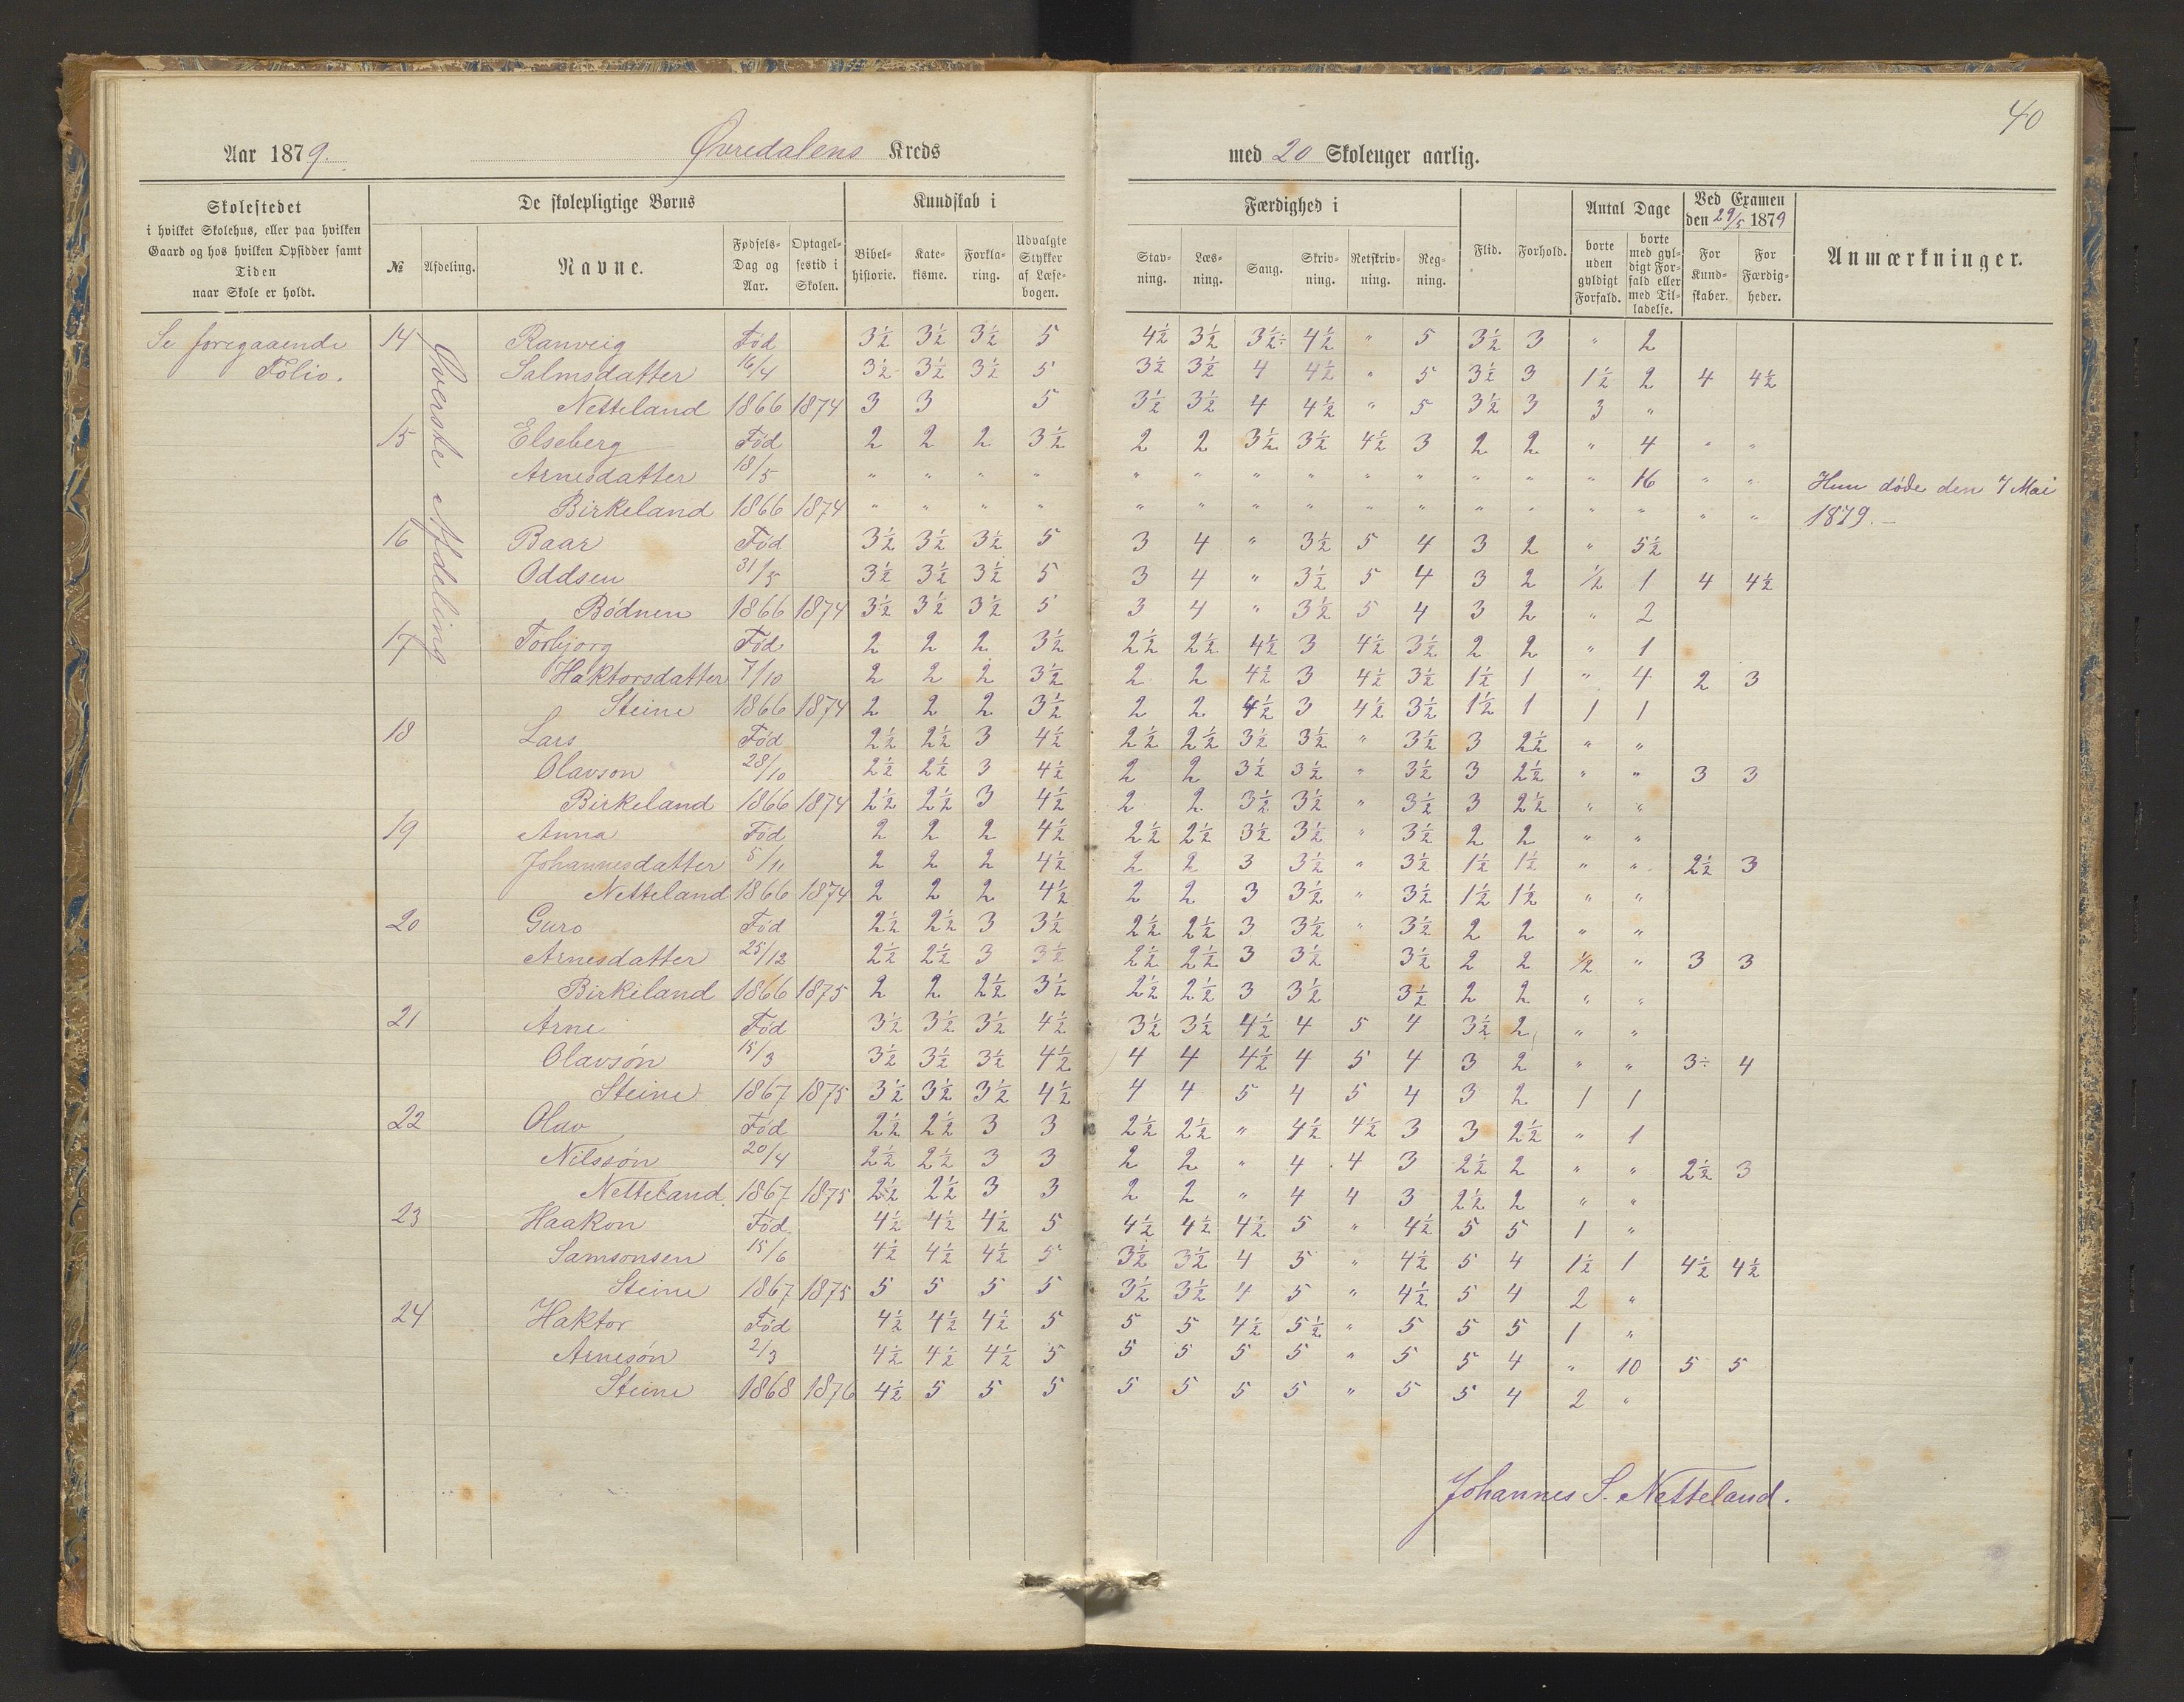 40
Aar 1879. Øvredalens Kreds med 20 Skoleuger aarlig.
Skolestedet
i hvilket Skolehus, eller paa hvilken
Gaard og hos hvilken Opsidder samt
Tiden
naar Skole er holdt.
De skolepligtige Børns
№ Afdeling. Navne. Fødsels-Dag og Aar. Optagel-sestid i Skolen.
Kundskab i
Bibel-historie. Kate-kisme. Forkla-ring. Udvalgte Stykker af Læse-bogen.
Færdighed i
Stav-ning. Læs-ning. Sang. Skriv-ning. Retskriv-ning. Reg-ning.
Flid. Forhold.
Antal Dage
borte uden gyldigt Forfald. borte med gyl-digt For-fald eller med Til-ladelse.
Ved Examen
den 29/5 1879
For Kund-skaber. For Færdig-heder.
Anmærkninger.
Se foregaaende
Folio.
Øverste Afdeling.
14 Ranveig Fød 3½ 3½ 3½ 5 4½ 3½ 3½÷ 4½ " 5 3½ 3 " 2
Salmsdatter 16/4 3½ 3½ 3½ 5 3½ 3½ 4 4½ " 5 3½ 3 1½ 2 4 4½
Netteland 1866 1874 3 3 5 3½ 3½ 4 4½ " 5 3½ 3 3 "
15 Elseberg Fød 2 2 2 3½ 2 2 3½ 3½ 4½ 3 2 2 " 4 " "
Arnesdatter 18/5 " " " " " " " " " " " " " 16 " " Hun døde den 7 Mai
Birkeland 1866 1874 " " " " " " " " " " " " " " " " 1879.—
16 Baar Fød 3½ 3½ 3½ 5 3 4 " 3½ 5 4 3 2 " 5½
Oddsen 31/5 3½ 3½ 3½ 5 3 4 " 3½ 5 4 3 2 ½ 1 4 4½
Bødnen 1866 1874 3½ 3½ 3½ 5 3 4 " 3½ 5 4 3 2 " 2
17 Torbjorg Fød 2 2 2 3½ 2½ 2½ 4½ 3 4½ 3½ 2 2 " 1
Haktorsdatter 7/10 2 2 2 3½ 2 2 4½ 3 4½ 3½ 1½ 1 " 4 2 3
Steine 1866 1874 2 2 2 3½ 2 2 4½ 3 4½ 3½ 1½ 1 1 1
18 Lars Fød 2½ 2½ 3 4½ 2½ 2½ 3½ 3½ " 3½ 3 2½ " "
Olavson 28/10 2½ 2½ 3 4½ 2 2 3½ 3½ " 3½ 3 2½ " " 3 3
Birkeland 1866 1874 2½ 2½ 3 4½ 2 2 3½ 3½ " 3½ 3 2½ " "
19 Anna Fød 2 2 2 4½ 2½ 2½ 3½ 3½ " 3½ 2 2 " "
Johannesdatter 5/11 2 2 2 4½ 2 2 3 3½ " 3½ 1½ 1½ " " 2½ 3
Netteland 1866 1874 2 2 2 4½ 2 2 3 3½ " 3½ 1½ 1½ " "
20 Guro Fød 2½ 2½ 3 3½ 2½ 2½ 3 3½ " 3½ 2 2 " "
Arnesdatter 25/12 2½ 2½ 3 3½ 2½ 2½ 3 3½ 3½ 2 2 ½ " 3 3
Birkeland 1866 1875 2 2 2½ 3½ 2½ 2½ 3 3½ 3½ 2 2 " "
21 Arne Fød 3½ 3½ 3½ 4½ 3½ 3½ 4½ 4 5 4 3½ 2 " "
Olavsøn 15/3 3½ 3½ 3½ 4½ 4 4 4½ 4 5 4 3 2 " " 3÷ 4
Steine 1867 1875 3½ 3½ 3½ 4½ 4 4 5 4 5 4 3 2 1 1
22 Olav Fød 2½ 2½ 3 3 2½ 2½ " 4½ 4½ 3 3 2½ " 1
Nilssøn 20/4 2½ 2½ 3 3 2 2 " 4 4 3 2½ 2 " " 2½ 3
Netteland 1867 1875 2½ 2½ 3 3 2 2 " 4 4 3 2½ 2 " "
23 Haakon Fød 4½ 4½ 4½ 5 4½ 4½ 4½ 5 " 4½ 5 5 1 "
Samsonsen 15/6 4½ 4½ 4½ 5 3½ 3½ 4 5 " 4½ 5 4 1½ 1 4½ 4½
Steine 1867 1875 5 5 5 5 3½ 3½ 4 5 " 4½ 5 4 2 "
24 Haktor Fød 4½ 4½ 4½ 5 5 5 4½ 5½ " 5 5 5 1 "
Arnesøn 2/3 4½ 4½ 4½ 5 5 5 5 5 " 5 5 4 " 10 5 5
Steine 1868 1876 4½ 5 5 5 5 5 5 5 " 5 5 4 2 "
Johannes S. Netteland.